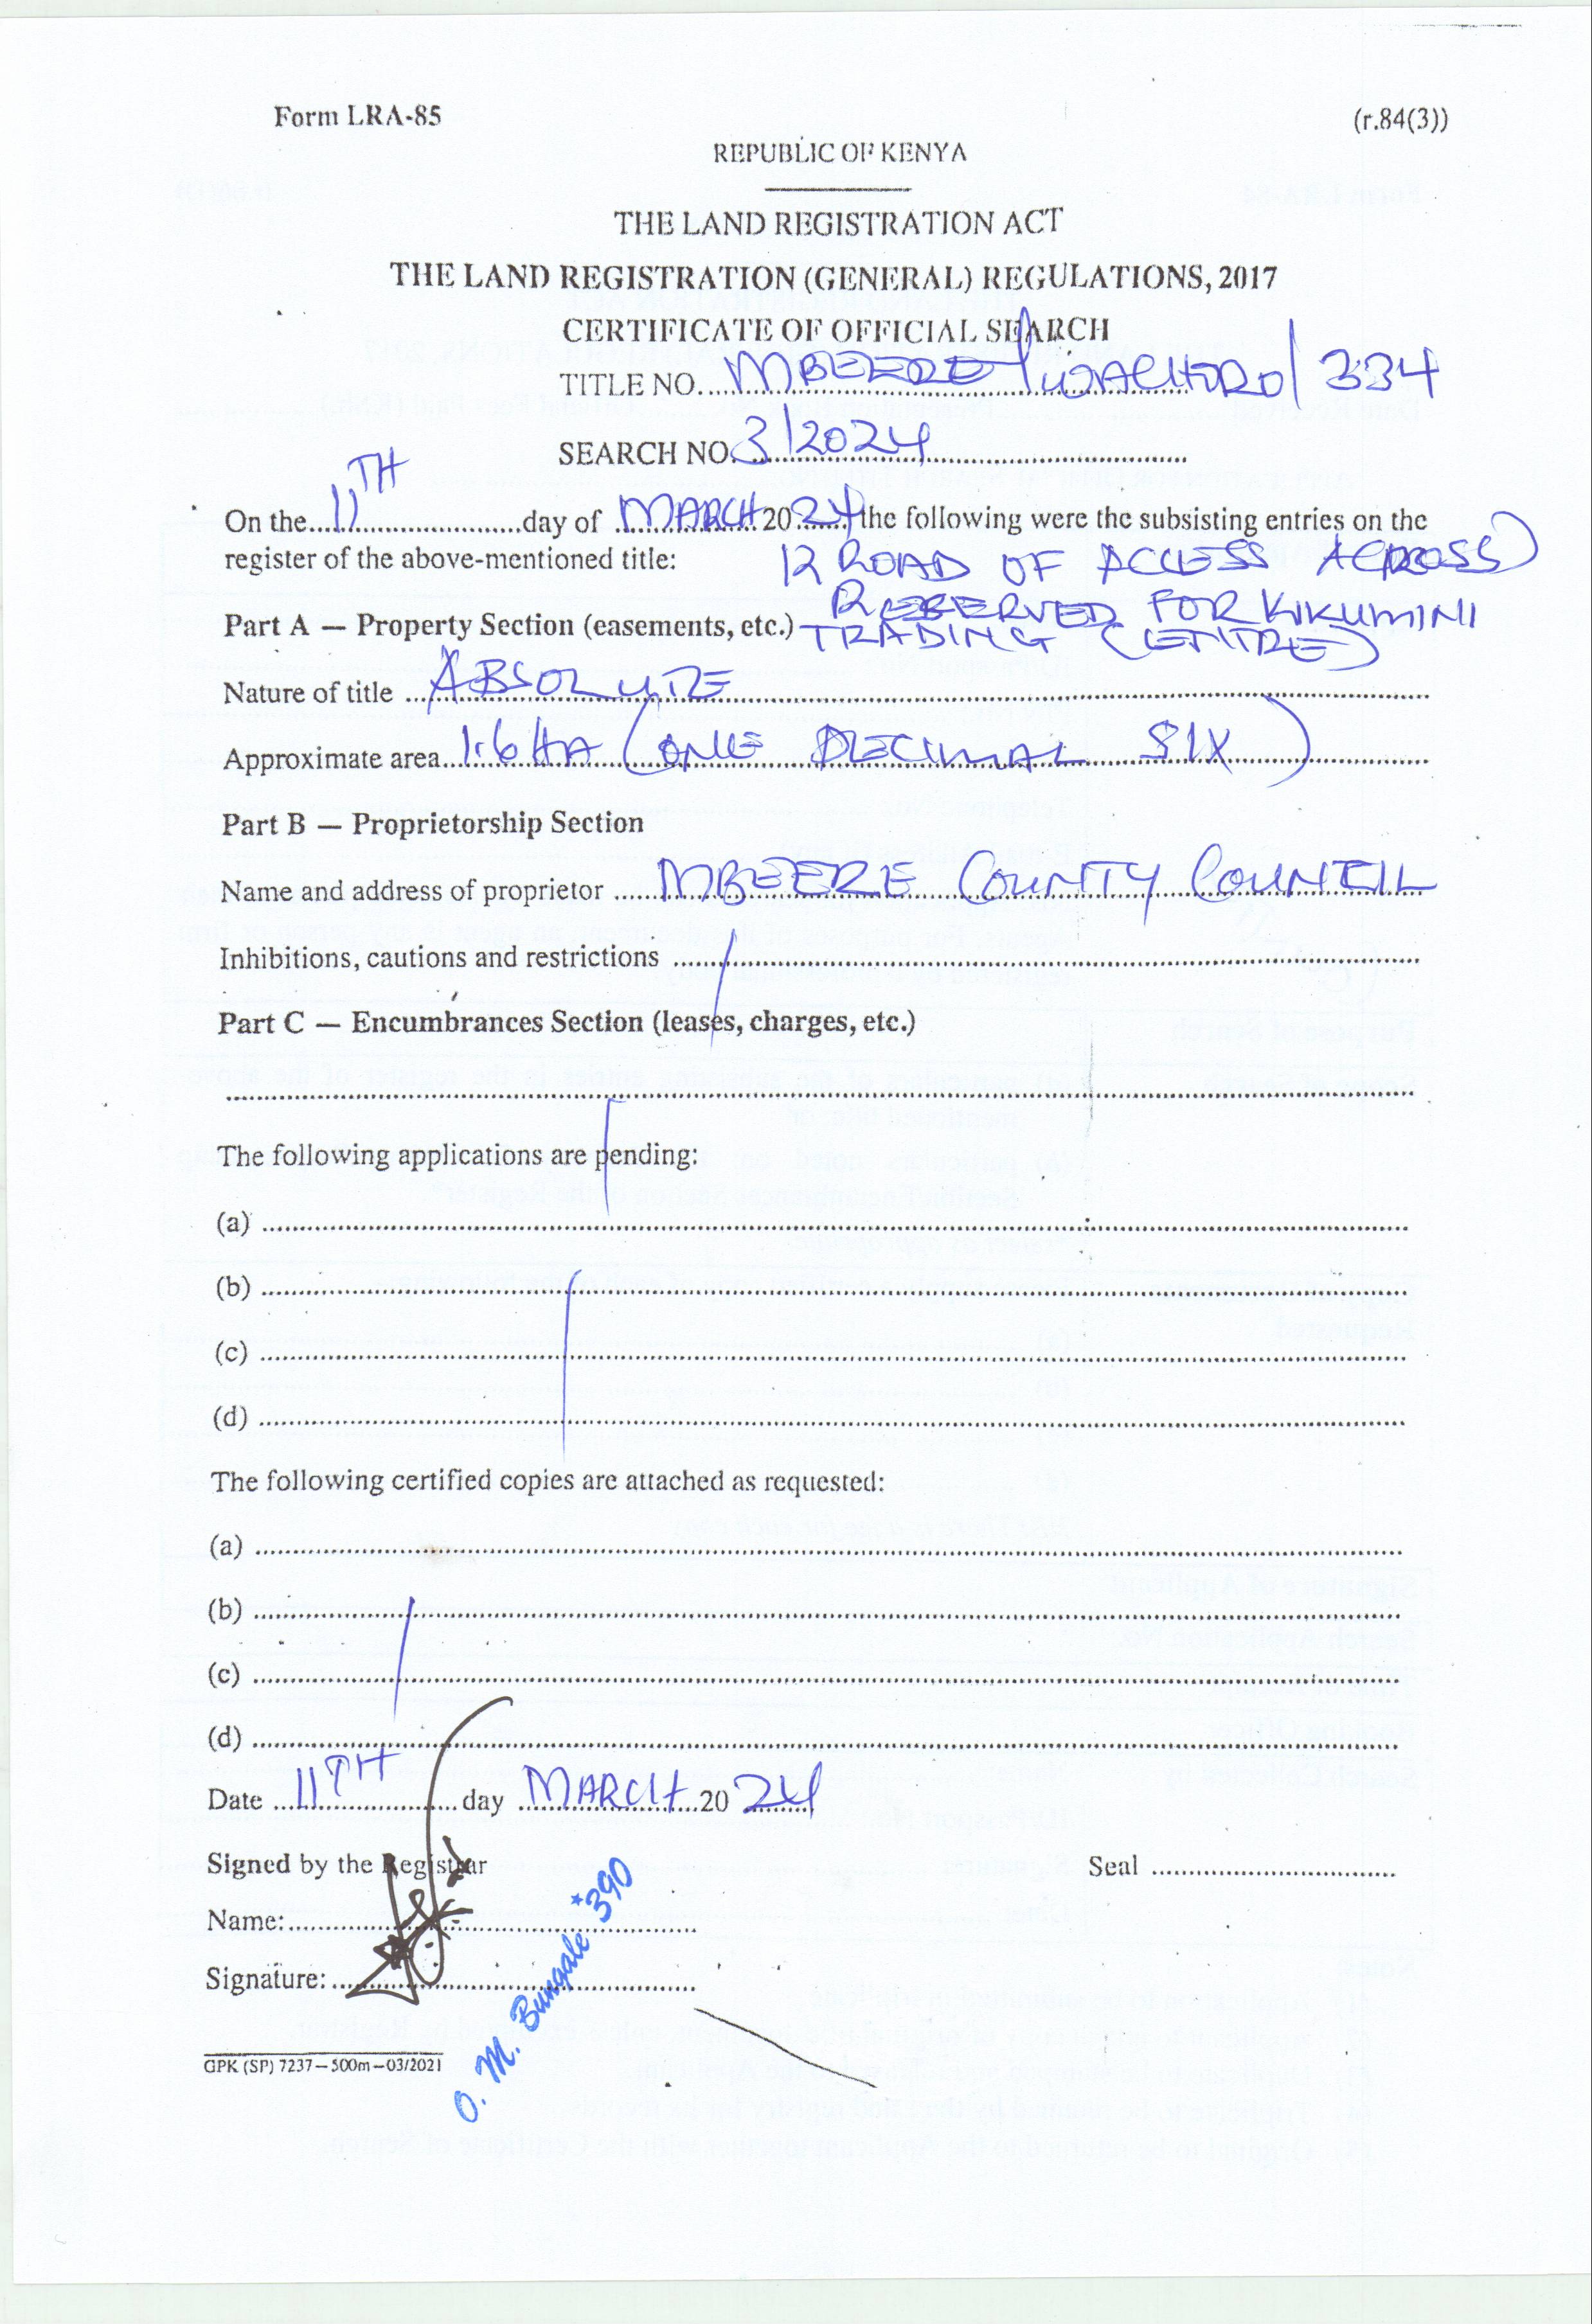 Form LRA-85
(r.84(3))
REPUBLIC OF KENYA
THE LAND REGISTRATION ACT
THE LAND REGISTRATION (GENERAL) REGULATIONS, 2017
CERTIFICATE OF OFFICIAL SEARCH
TITLE NO. MBEERE/WACHORO/334
SEARCH NO. 3/2024
On the 11TH day of MARCH 2024 the following were the subsisting entries on the
register of the above-mentioned title: ROAD OF ACCESS ACROSS)
Part A — Property Section (easements, etc.) RESERVED FOR KIKUMINI
TRADING CENTRE)
Nature of title ABSOLUTE
Approximate area 1.6 HA (ONE DECIMAL SIX)
Part B — Proprietorship Section
Name and address of proprietor MBEERE COUNTY COUNCIL
Inhibitions, cautions and restrictions
Part C — Encumbrances Section (leases, charges, etc.)
The following applications are pending:
(a)
(b)
(c)
(d)
The following certified copies are attached as requested:
(a)
(b)
(c)
(d)
Date 11TH day MARCH 2024
Signed by the Registrar
Seal
Name:
Signature:
O. M. Bungale *390
GPK (SP) 7237—500m—03/2021